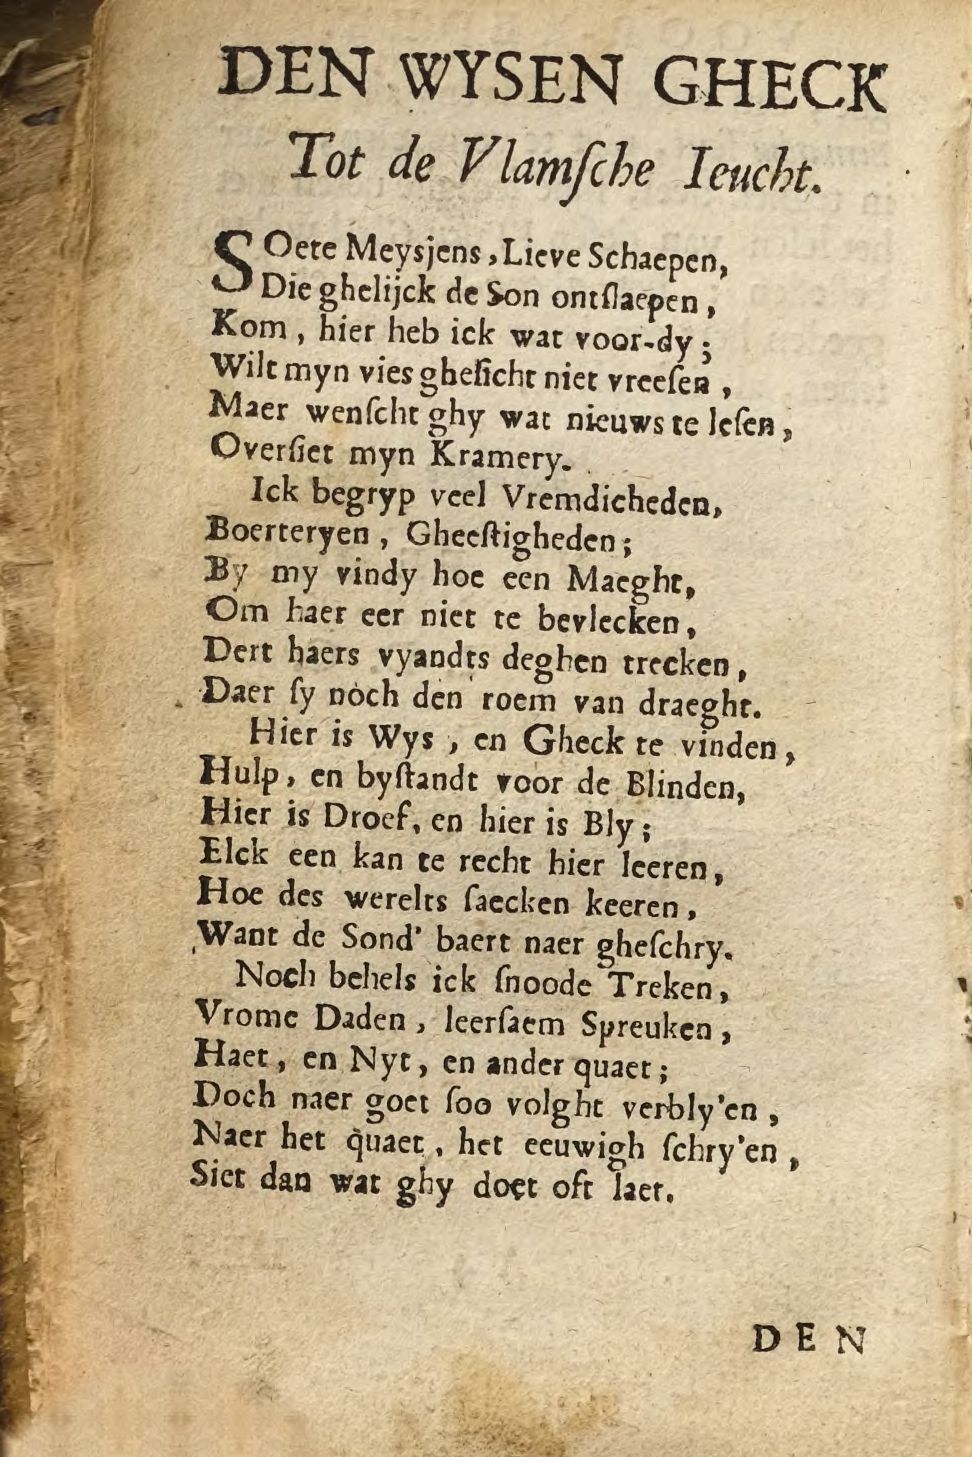 DEN WYSEN GHECK
Tot de Vlamſche Ieucht.
SOete Meysjens, Lieve Schaepen,
Die ghelijck de Son ontſlaepen,
Kom, hier heb ick wat voor-dy;
Wilt myn vies gheſicht niet vreeſen,
Maer wenſcht ghy wat nieuws te leſen,
Overſiet myn Kramery.
Ick begryp veel Vremdicheden,
Boerteryen, Gheeſtigheden;
By my vindy hoe een Maeght,
Om haer eer niet te bevlecken,
Dert haers vyandts deghen trecken,
Daer ſy noch den roem van draeght.
Hier is Wys, en Gheck te vinden,
Hulp, en byſtandt voor de Blinden,
Hier is Droef, en hier is Bly;
Elck een kan te recht hier leeren,
Hoe des werelts ſaecken keeren,
Want de Sond' baert naer gheſchry.
Noch behels ick ſnoode Treken,
Vrome Daden, leerſaem Spreuken,
Haet, en Nyt, en ander quaet;
Doch naer goet ſoo volght verbly'en,
Naer het quaet, het eeuwigh ſchry'en,
Siet dan wat ghy doet oft laet.
DEN